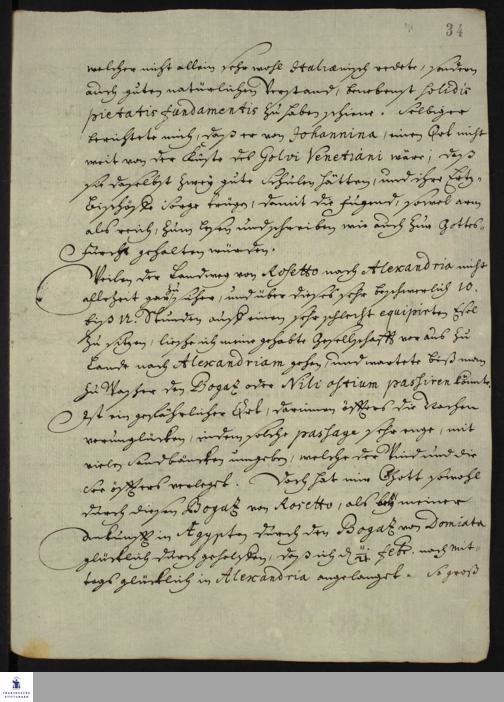 34
welcher nicht allein sehr wohl Italiænisch redete, sondern
auch guten natürlichen Verstand, benebenst solidis
pietatis fundamentis zu haben schiene. Selbiger
berichtete mich, daß er von Johannina, einen Ort nicht
weit von der Küste des Golvi Venetiani wäre, daß
sie daselbst zwey gute Schulen hätten, und ihre Ertz-
Bischöffe Sorge trügen, damit die Jugend, sowol arm
als reich, zum lesen und schreiben wie auch zur Gottes-
furcht gehalten würden.
Weilen der Landweg von Rosetto nach Alexandria nicht
allezeit gar zu sicher, und über dieses sehr beschwerlich 10.
biß 12. Stunden auf einen sehr schlecht equipirten Esel
zu sitzen, ließe ich meine gehabte Gesellschafft voraus zu
Lande nach Alexandriam gehen, und wartete biß man
zu Wasser den Bogaz oder Nili ostium passiren könnte.
Ist ein gefährlicher Ort, darinnen öffters die Nachen
verunglücken, indem solche passage sehr enge, mit
vielen Sandbäncken umgeben, welche der Wind und die
See öffters verleget. Doch hat mir Gott sowohl
durch diesen Bogaz von Rosetto, als bey meiner
Ankunfft in Ægypten durch den Bogaz von Domiata
glücklich durchgeholffen, daß ich d. Febr. nachmit-
tags glücklich in Alexandria angelanget. So groß
FRANCKESCHE
STIFTUNGEN